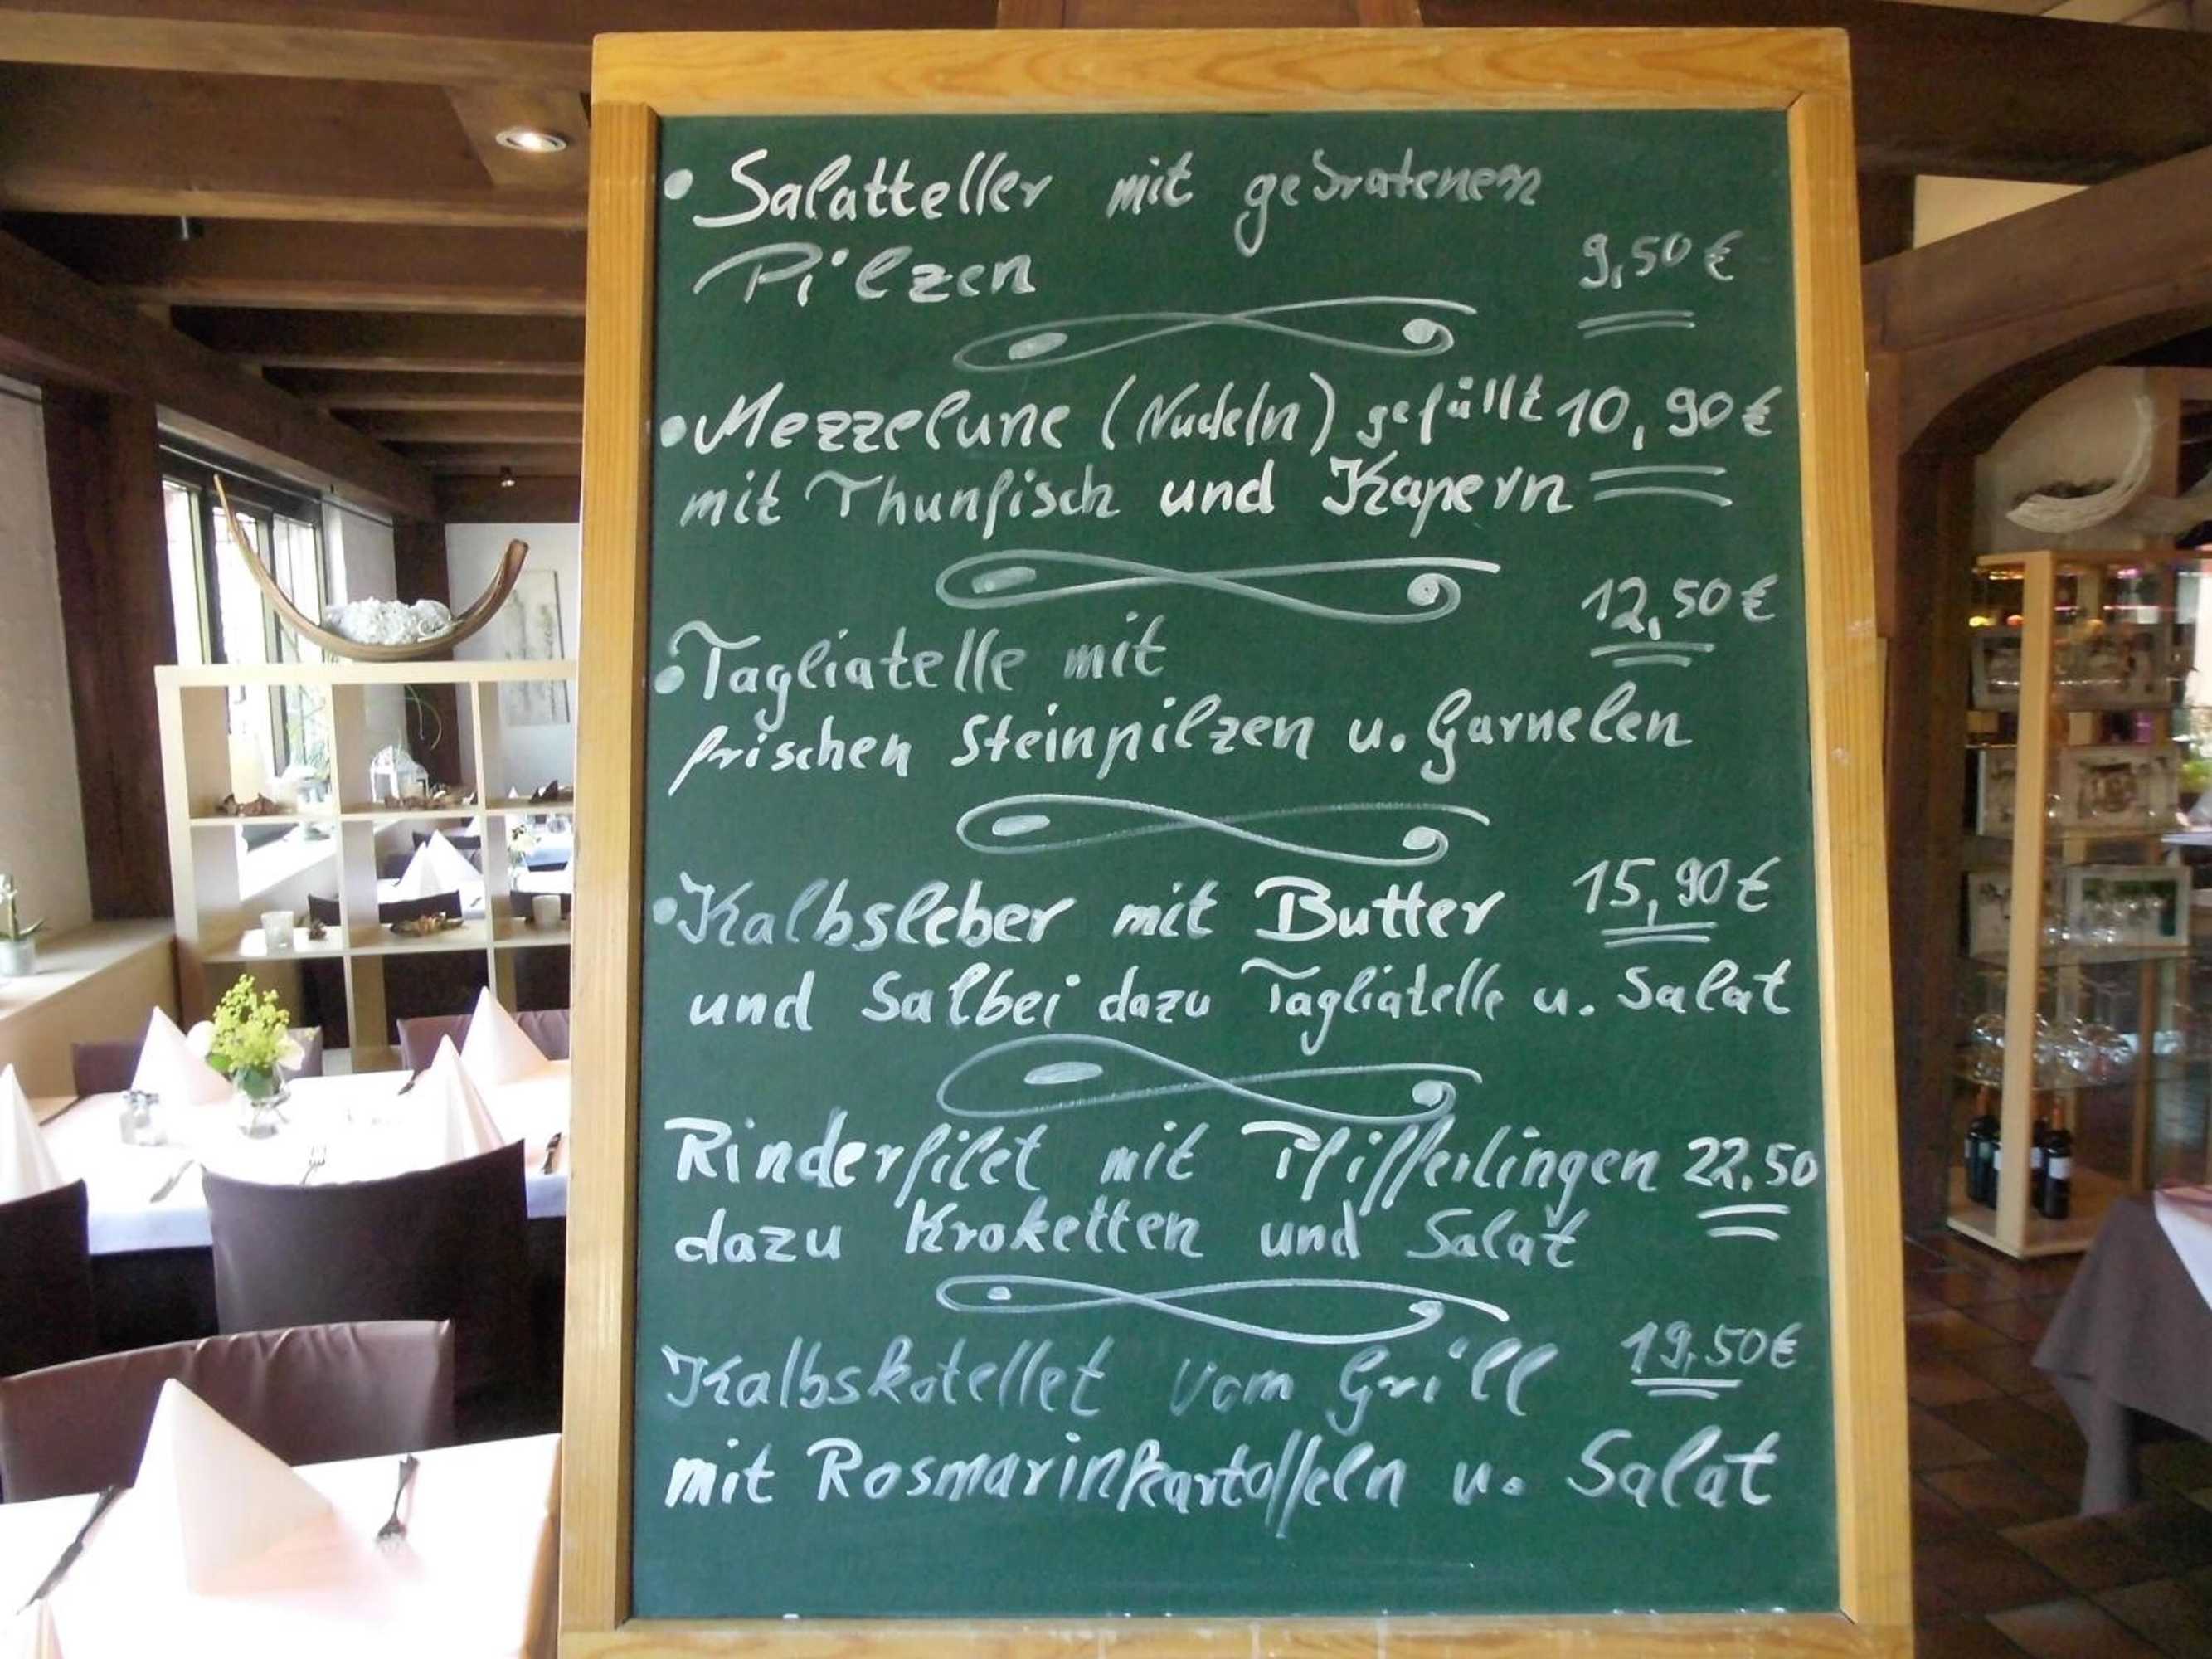 • Salatteller mit gebratenen
Pilzen 9,50 €
• Mezzelune (Nudeln) gefüllt 10,90 €
mit Thunfisch und Kapern
12,50 €
• Tagliatelle mit
frischen Steinpilzen u. Garnelen
• Kalbsleber mit Butter 15,90 €
und Salbei dazu Tagliatelle u. Salat
Rinderfilet mit Pfifferlingen 22,50
dazu Kroketten und Salat
Kalbskotellet vom Grill 19,50 €
mit Rosmarinkartoffeln u. Salat